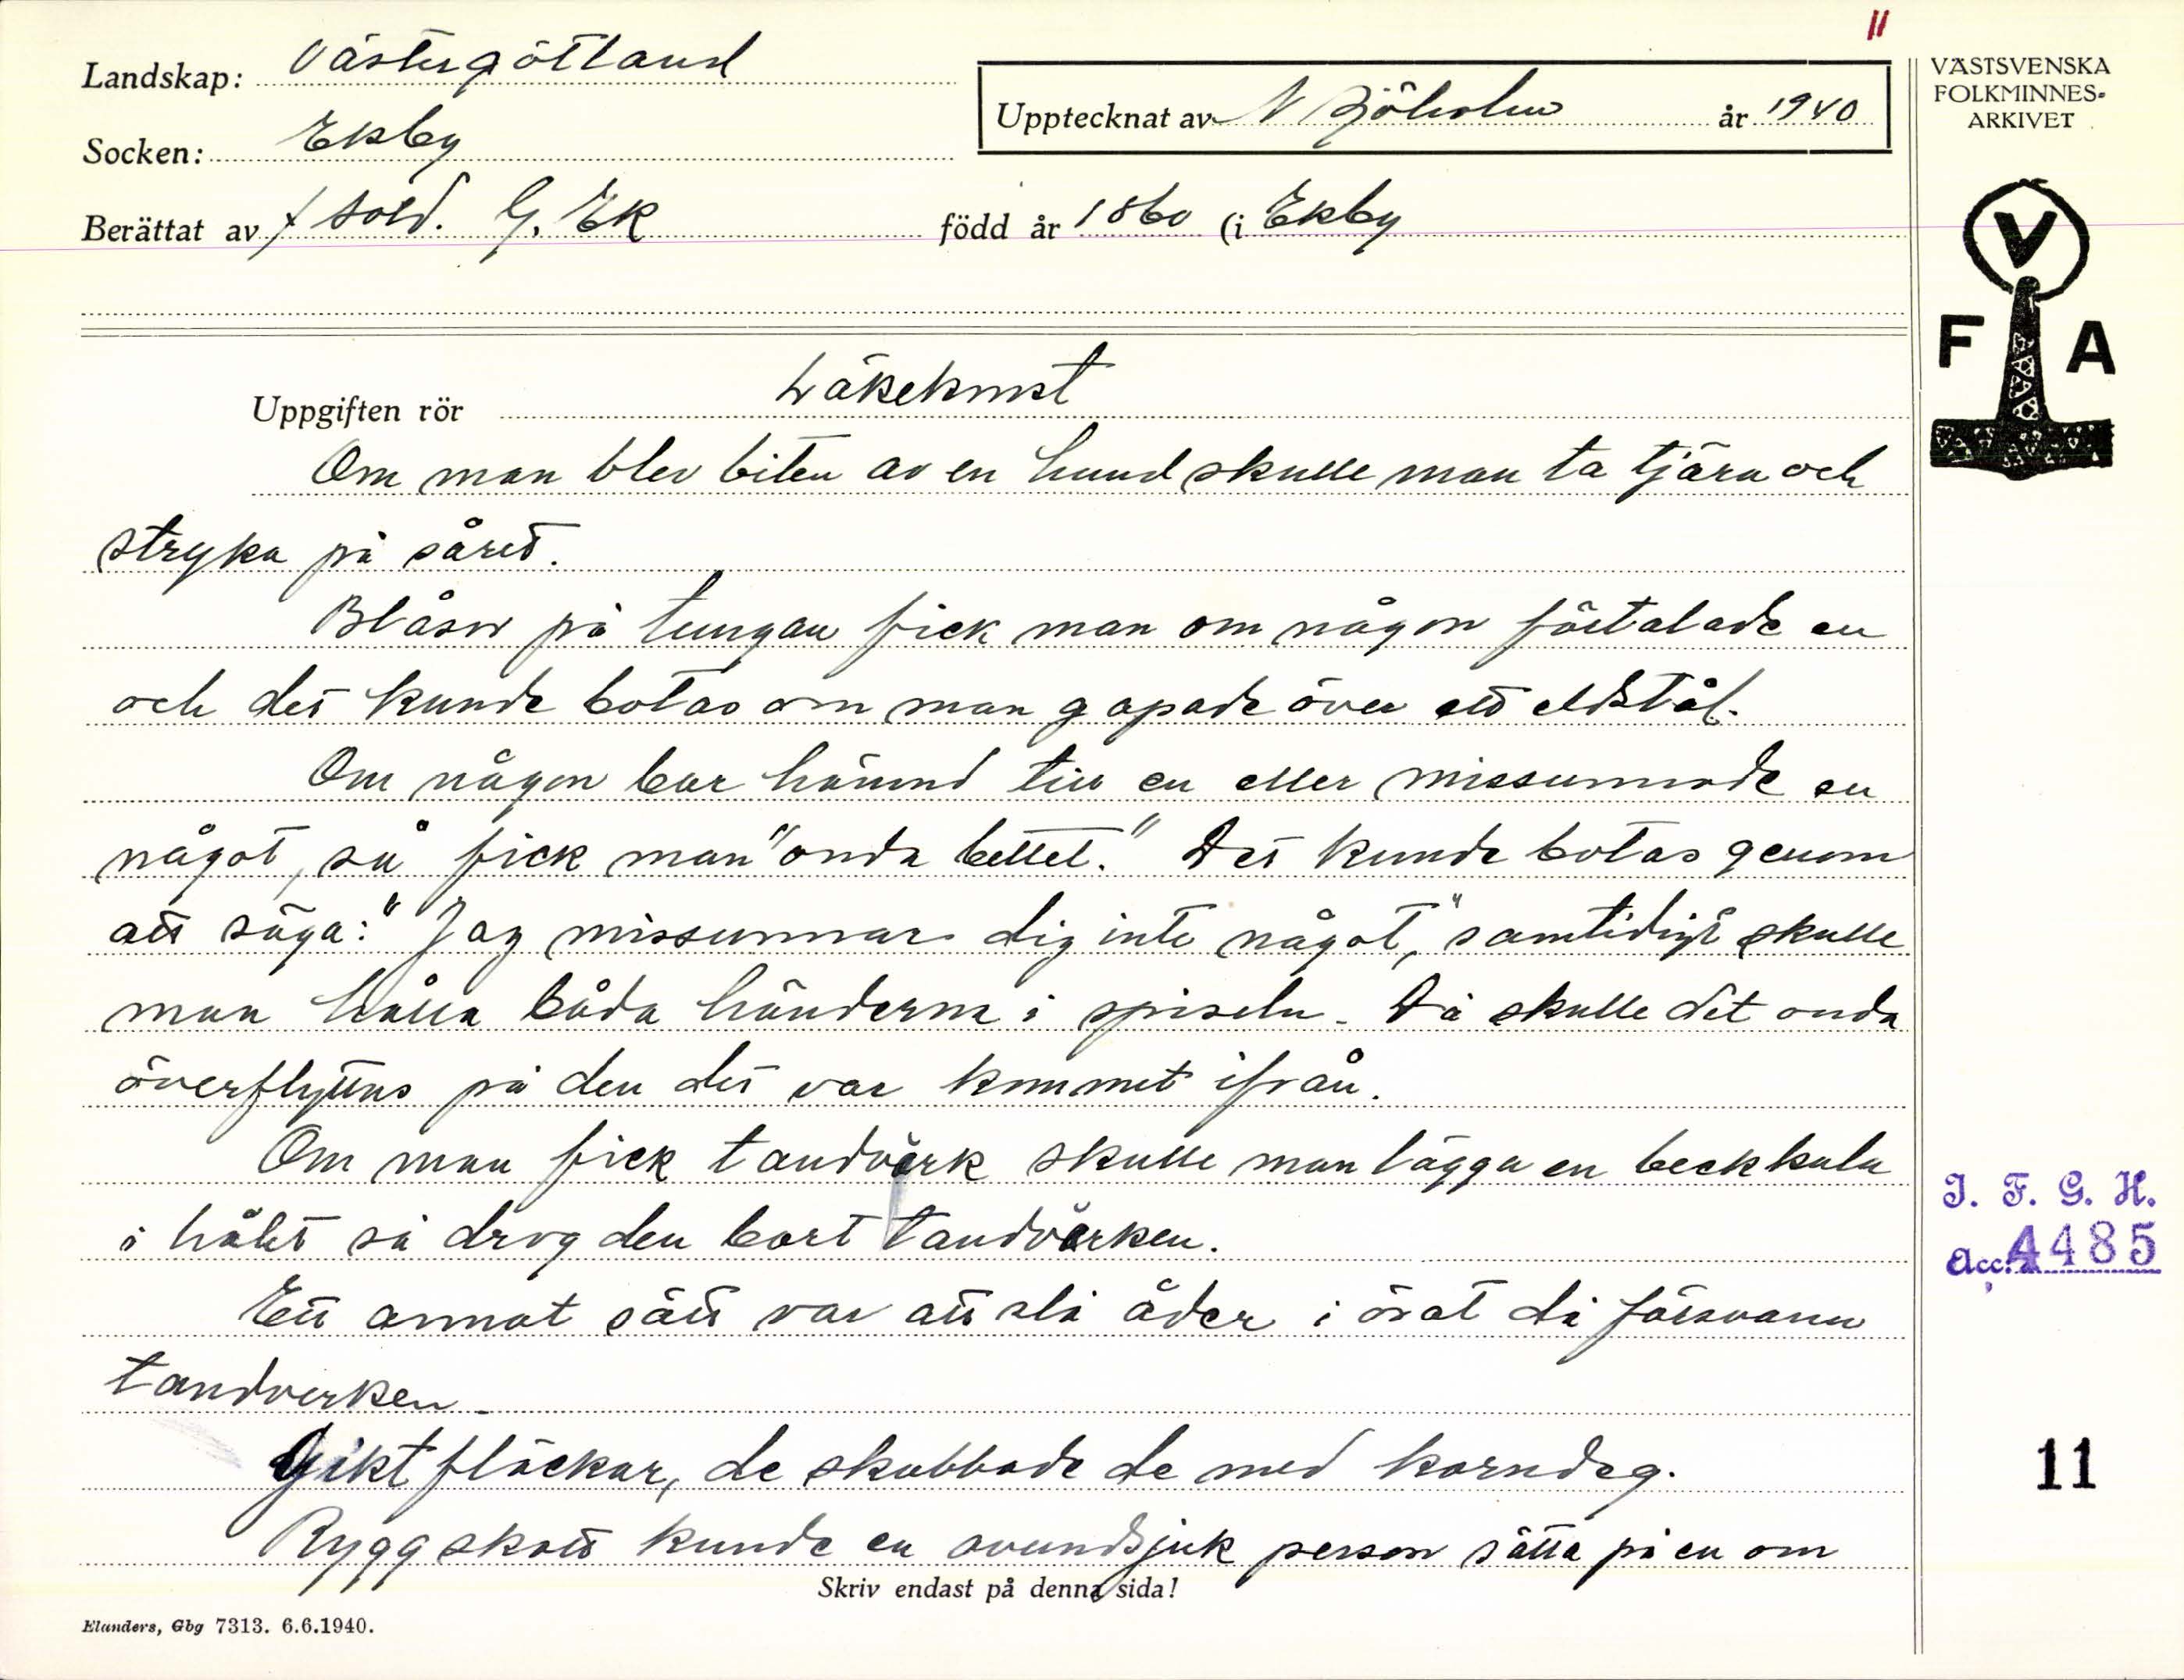 11
Landskap: Västergötland
Socken: Ekby
Upptecknat av N Sjöholm år 1940
Berättat av f sold. G. Ek född år 1860 (i Ekby
VÄSTSVENSKA
FOLKMINNES-
ARKIVET
V
F A
Uppgiften rör Läkekonst
Om man blev biten av en hund skulle man ta tjära och
stryka på såret.
Blåsor på tungan fick man om någon förtalade en
och det kunde botas om man gapade över ett eldstål.
Om någon bar hämnd till en eller missunnade en
något, så fick man "onda bettet." Det kunde botas genom
att säga: "Jag missunnar dig inte något," samtidigt skulle
man hålla båda händerna i spiseln. Då skulle det onda
överflyttas på den det var kommet ifrån.
Om man fick tandvärk skulle man lägga en beckkula
i hålet så drog den bort tandvärken.
Ett annat sätt var att slå åder i örat då försvann
tandverken.
Giktfläckar, de skubbade de med korndeg.
Ryggskott kunde en avundsjuk person sätta på en om
Skriv endast på denna sida!
Elanders, Gbg 7313. 6.6.1940.
I. F. G. H.
Acc. 4485
11